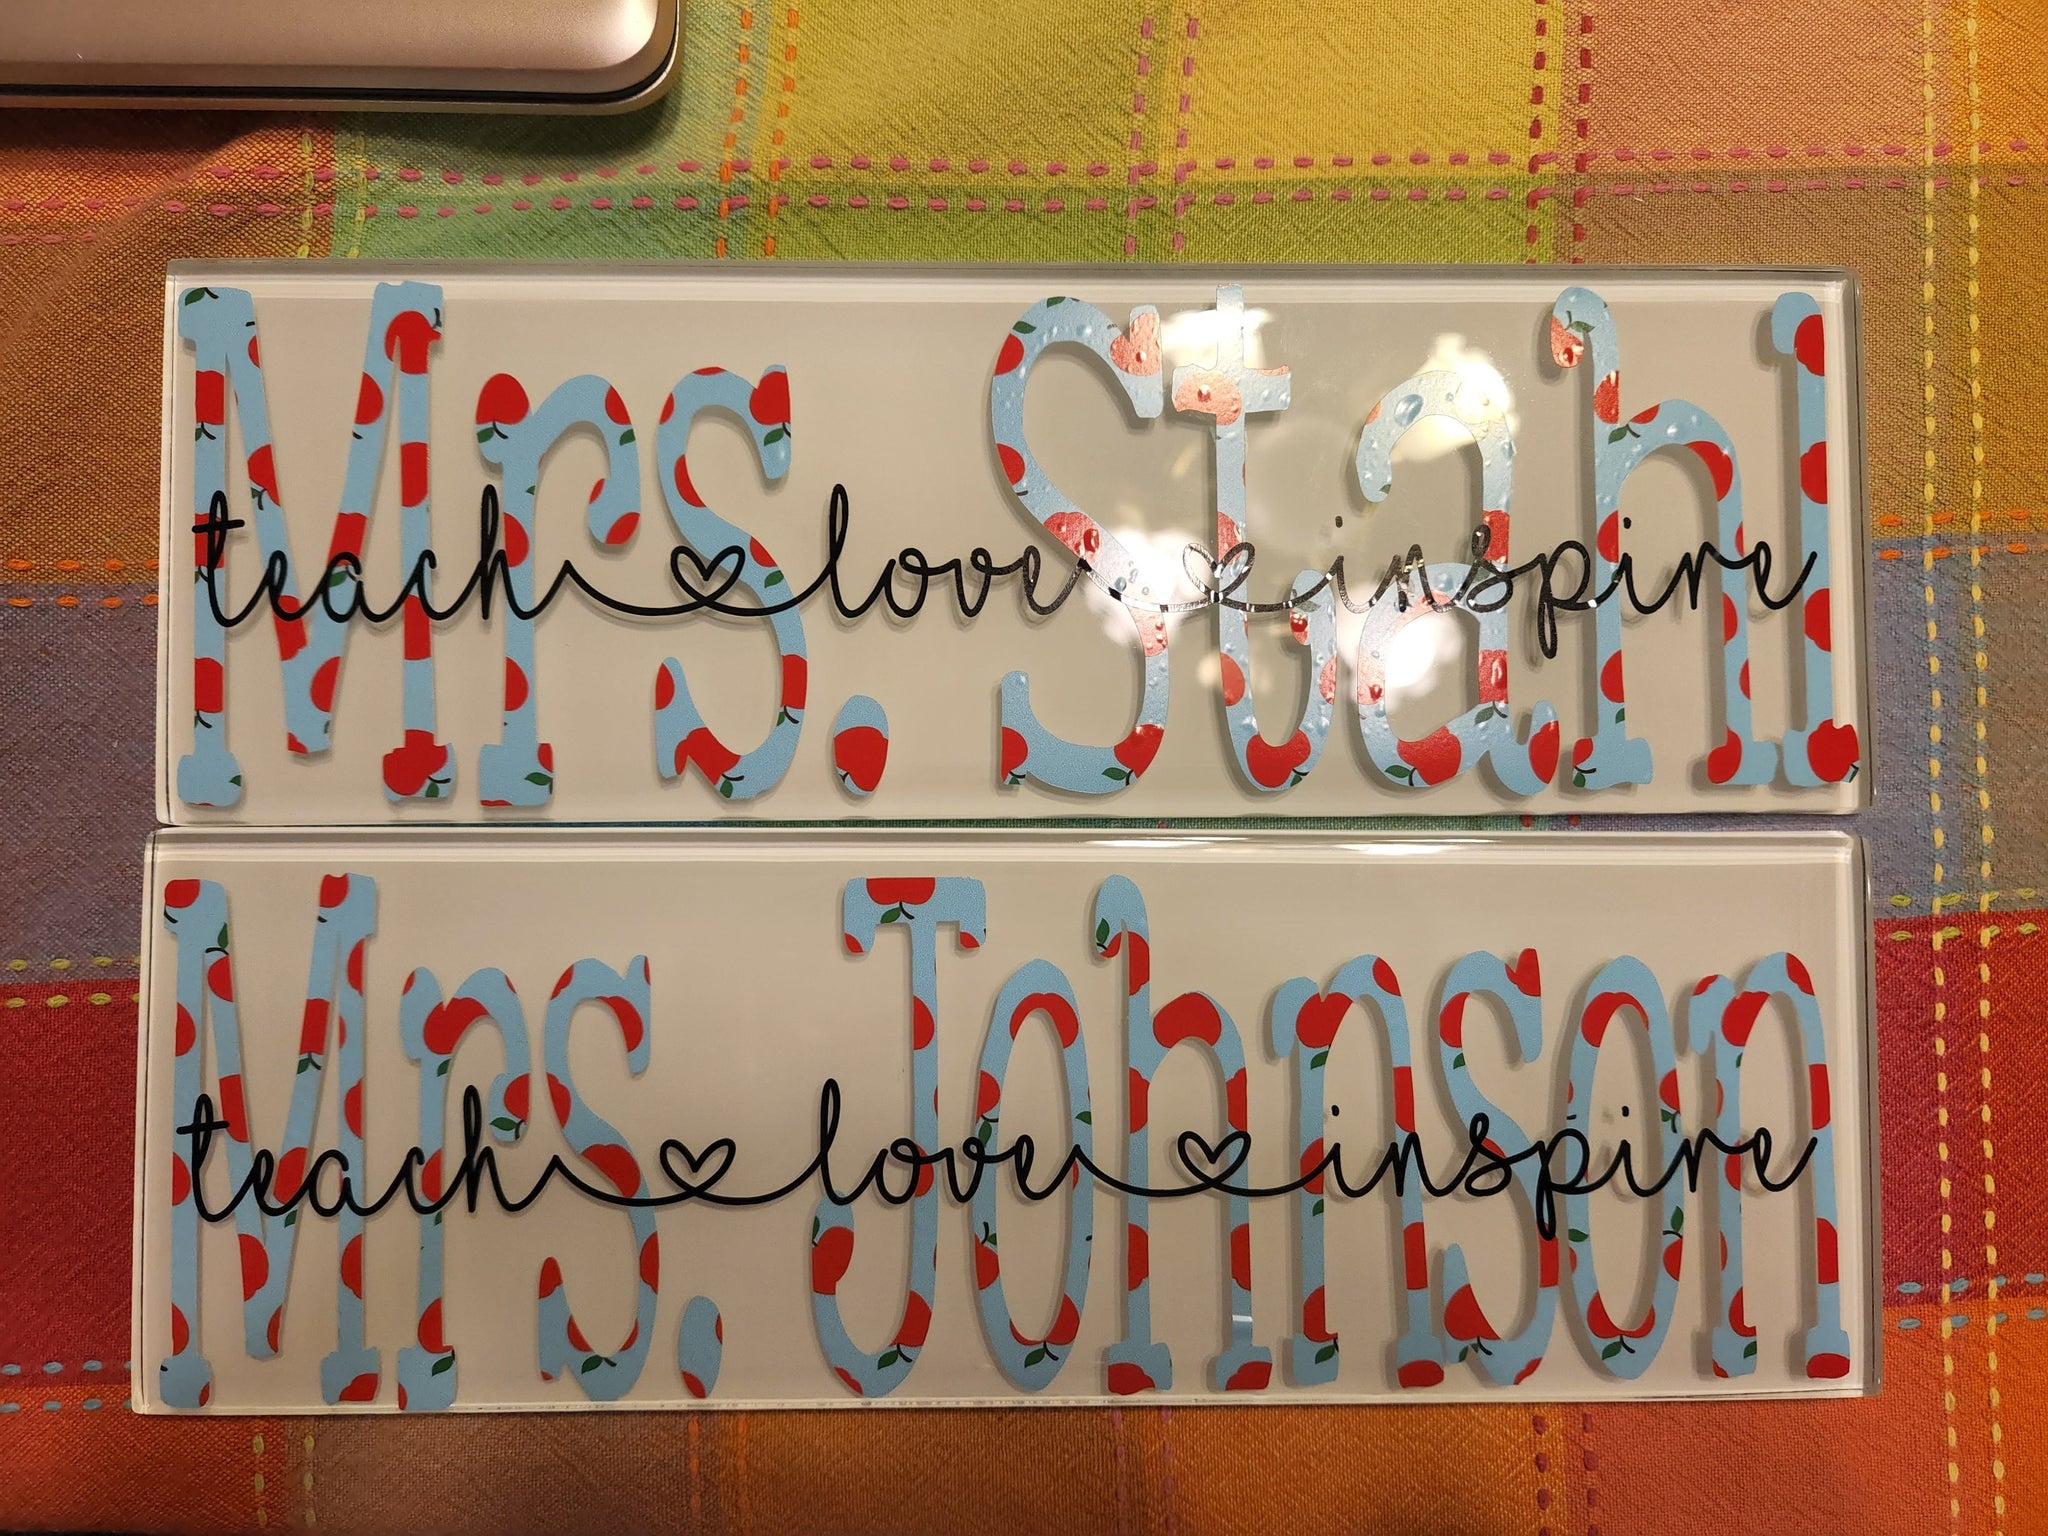 Mrs. Stahl
teach love inspire
Mrs. Johnson
teach love inspire